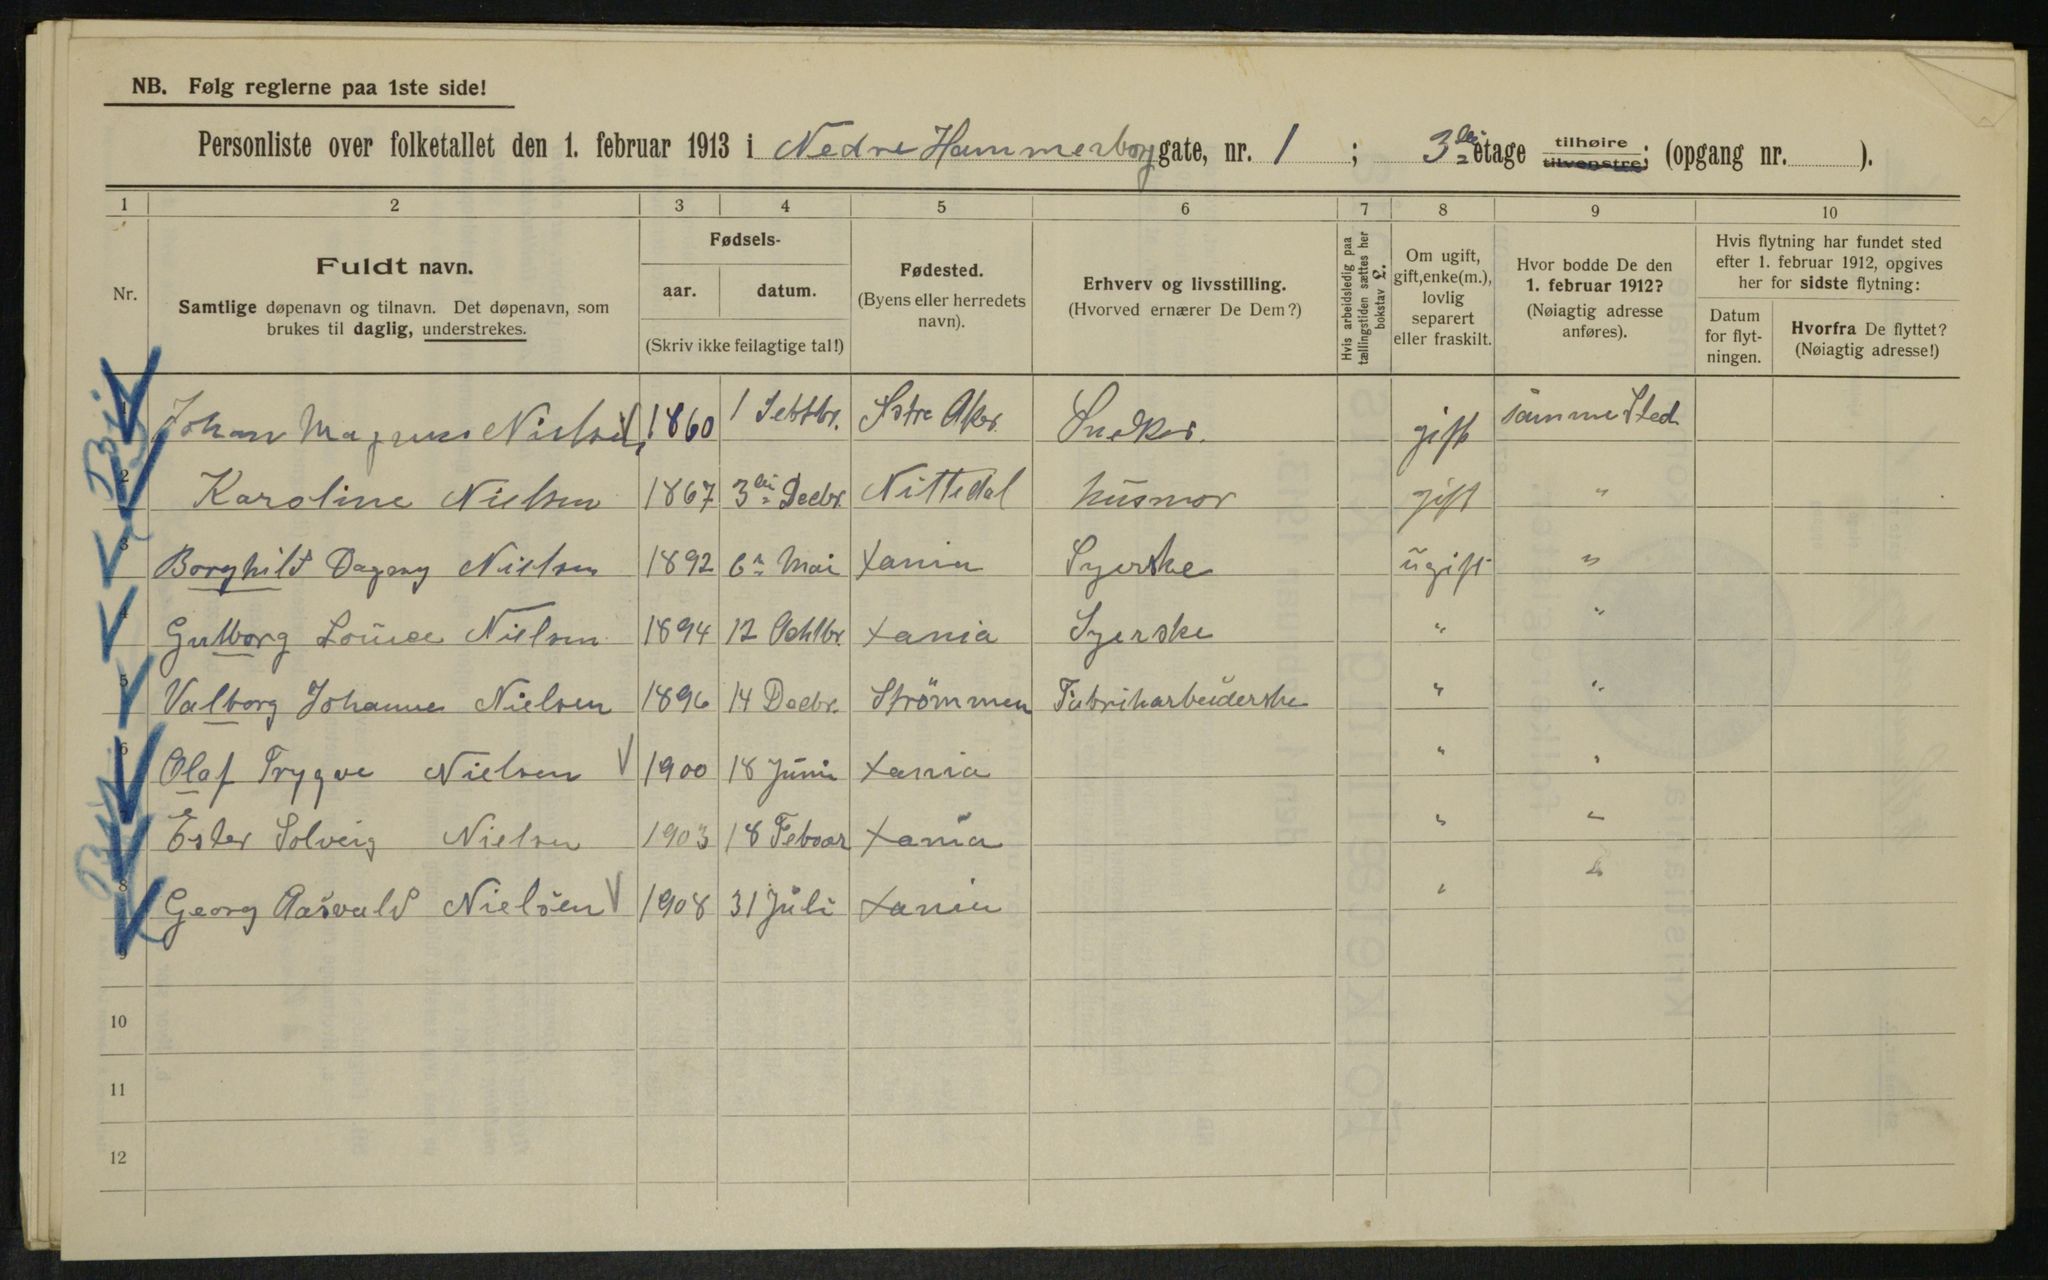 NB. Følg reglerne paa 1ste side!
Personliste over folketallet den 1. februar 1913 i Nedre Hammerborg gate, nr. 1 ; 3die etage tilhøire tilvenstre; (opgang nr. ).
1 2 3 4 5 6 7 8 9 10
Nr.
Fuldt navn.
Samtlige døpenavn og tilnavn. Det døpenavn, som
brukes til daglig, understrekes.
Fødsels-
aar. datum.
(Skriv ikke feilagtige tal!)
Fødested.
(Byens eller herredets
navn).
Erhverv og livsstilling.
(Hvorved ernærer De Dem?)
Hvis arbeidsledig paa
tællingstiden sættes her
bokstav L.
Om ugift,
gift, enke(m.),
lovlig
separert
eller fraskilt.
Hvor bodde De den
1. februar 1912?
(Nøiagtig adresse
anføres).
Hvis flytning har fundet sted
efter 1. februar 1912, opgives
her for sidste flytning:
Datum
for flyt-
ningen.
Hvorfra De flyttet?
(Nøiagtig adresse!)
1 Johan Magnus Nielsen 1860 1 Septbr. Østre Aker Snekker gift samme Sted
2 Karoline Nielsen 1867 3die Decbr. Nittedal husmor gift "
3 Borghild Dagny Nielsen 1892 6n Mai Xania Syerske ugift "
4 Gulborg Louise Nielsen 1894 12 Oktbr. Xania Syerske " "
5 Valborg Johanne Nielsen 1896 14 Decbr. Strömmen Fabrikarbeiderske " "
6 Olaf Trygve Nielsen 1900 18 Juni Xania " "
7 Ester Solveig Nielsen 1903 18 Feboar Xania " "
8 Georg Aasvald Nielsen 1908 31 Juli Xania " "
9
10
11
12